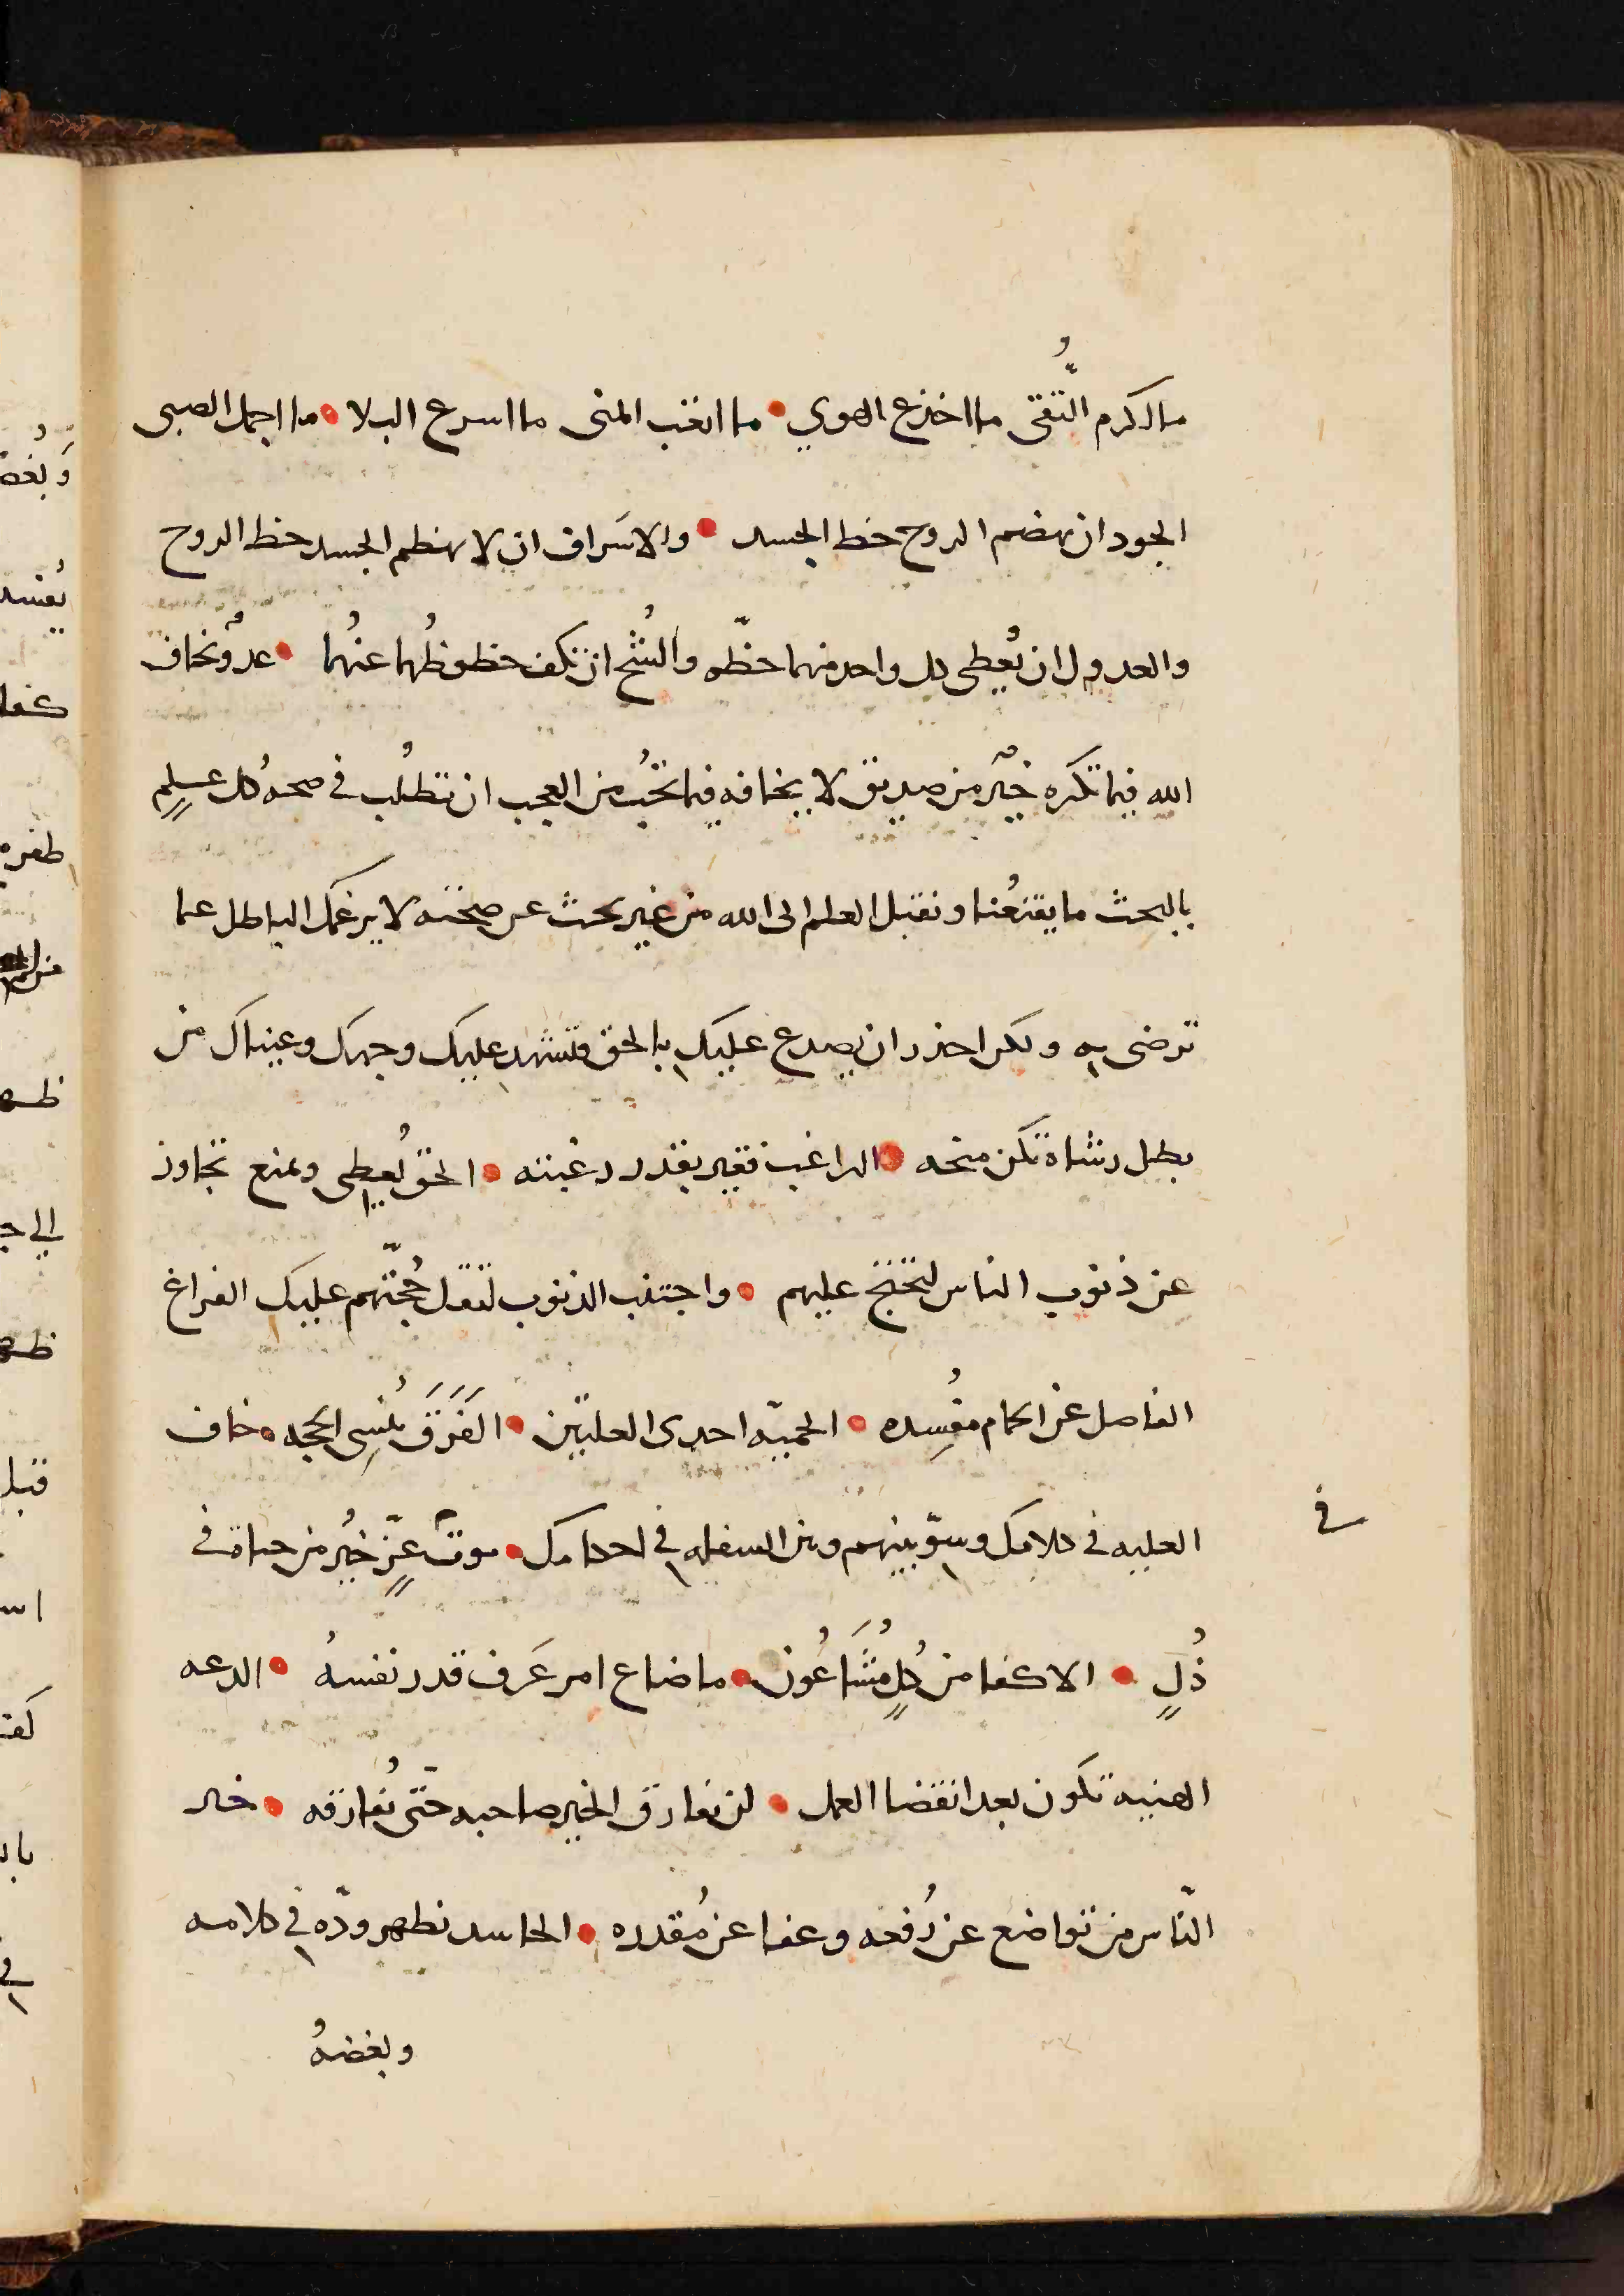 ما اكرم التُّقى ما اخدع الهوي • ما اتعب المنى ما اسرع البلا • ما اجمل الصبى
الجود ان يهضم الروح حظ الجسد • والاسَراف ان لا يهظم الجسد حظ الروح
والعدول ان يُعطى كل واحد منهما حظّه والشُح ان تكف حظوظُهما عنهُما • عدوٌ يخاف
الله فيما تكره خيٌر من صديق لا يخافه فيما تحُب من العجب ان تطلُب في صحه كُل علمٍ
بالبحث ما يقنعُنا ونقبل العلم الى الله من غير بحث عن صحته لا يرغمك الباطل عما
ترضى به ولكن احذر ان يصدع عليك بالحق فتشهد عليك وجهك وعيناك من
بطل رشاه تكن منحه • الراغب فقير بقدر رغبته • الحق يُعطى ويمنع تجاوز
عن ذنوب الناس لتحتج عليهم • واجتنب الذنوب لتقل حُجّتهم عليك الفراغ
الفاصل عن الحمام مفُسِده • الحميّه احدى العلتين • الفَرَقَ يُنسِى الحجه • خاف
العليه في كلامك وسوّ بينهم وبين السفله في احكامك • موتٌ عِزٍّ خيُر من حياة في
ذُلٍ • الاكفا من كُلٍ مُشَاعُون • ما ضاع امر عَرف قدر نفسهُ • الدعه
الهنيه تكون بعد انقضا العمل • لن يفارق الخير صاحبه حتّى يُفارقه • خير
النّاس من تواضع عن رُفعه وعفا عن مُقدره • الحاسد يظهر ودّه في كلامه
وبغضهُ
في